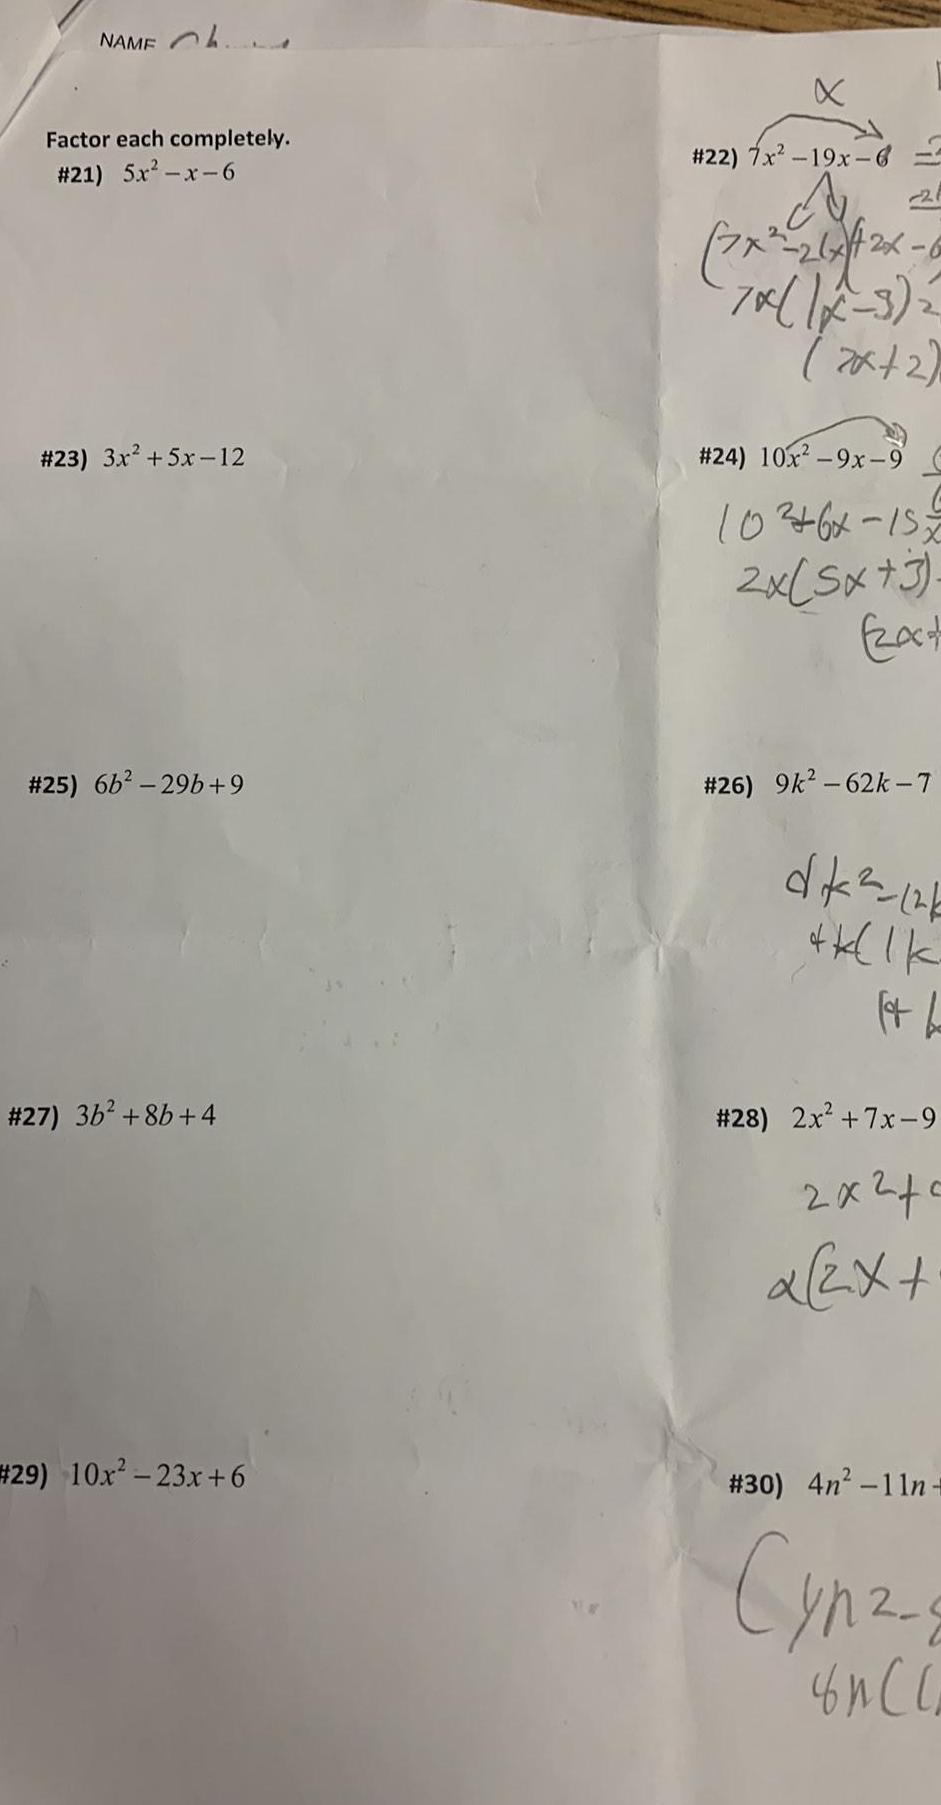 NAME
Factor each completely.
#21) 5x² – x – 6
x
#22) 7x² – 19x – 6
(7x² – 21x)(+2x – 6
7x(1x – 3) 2
(7x + 2)
#23) 3x² + 5x – 12
#24) 10x² – 9x – 9
10²+6x – 15x
2x(5x + 3)
(2x+
#25) 6b² – 29b + 9
#26) 9k² – 62k – 7
k²
k(1k
#27) 3b² + 8b + 4
#28) 2x² + 7x – 9
2x² +
x(2x +
#29) 10x² – 23x + 6
#30) 4n² – 11n +
(4n2 –
8n(